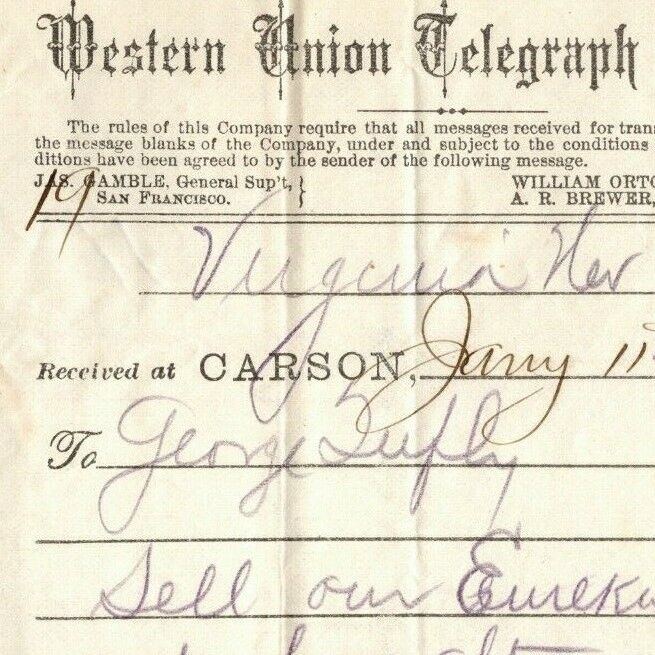 Western Union Telegraph
The rules of this Company require that all messages received for tran
the message blanks of the Company, under and subject to the conditions
ditions have been agreed to by the sender of the following message.
JAS. GAMBLE, General Sup't, } WILLIAM ORTO
SAN FRANCISCO. A. R. BREWER,
19
Virginia Nev
Received at CARSON, Jany 11
To George Tufly
Sell our Eureka